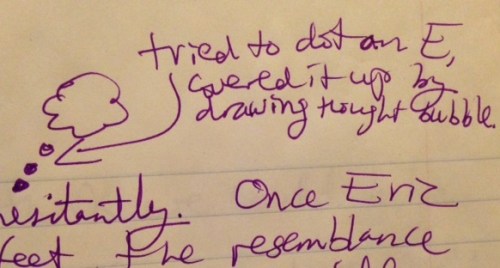 tried to dot an E,
covered it up by
drawing thought bubble.
hesitantly. Once Eric
feet the resemblance